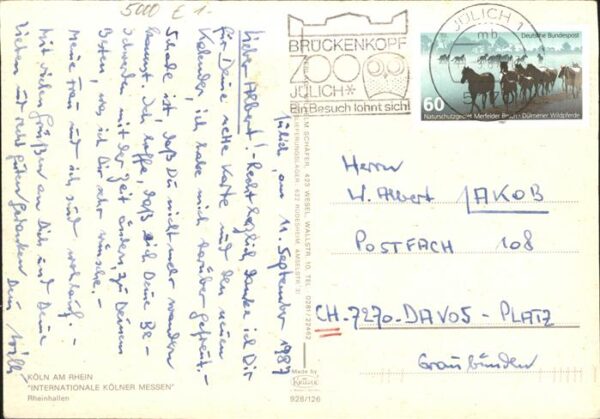 5000 € 1.-
BRÜCKENKOPF
ZOO
JÜLICH*
Ein Besuch lohnt sich!
JÜLICH 1
mb
Deutsche Bundespost
60
Naturschutzgebiet Merfelder Bruch · Dülmener Wildpferde
Jülich, am 11. September 1987
Lieber Albert! - Recht herzlich danke ich Dir
für Deine nette Karte und den neuen
Kalender, ich habe mich darüber gefreut. -
Schade ist, daß Du nicht mehr wandern
kannst. Ich hoffe, daß sich Deine Be-
schwerden mit der Zeit ändern, zu Deinem
Besten, was ich Dir sehr wünsche. -
Meine Frau und ich sind wohlauf. -
Mit vielen Grüßen an Dich und Deine
Lieben und recht guten Gedanken Dein Willi
SCHÄFER, 423 WESEL, WALLSTR. 10, TEL. 0281/22462
AUSLIEFERUNGSLAGER: 622 RÜDESHEIM, AMSELSTR.
Herrn
W. Albert JAKOB
POSTFACH 108
CH-7270-DAVOS-PLATZ
Graubünden
KÖLN AM RHEIN
"INTERNATIONALE KÖLNER MESSEN"
Rheinhallen
Made by
Krüger
928/126